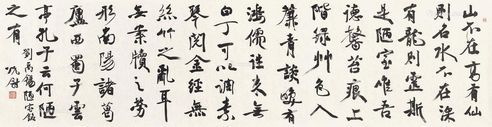 山不在高有仙
則名水不在深
有龍則靈斯
是陋室惟吾
德馨苔痕上
階綠艸色入
簾青談笑有
鴻儒往來無
白丁可以調素
琴閱金經無
絲竹之亂耳
無案牘之勞
形南陽諸葛
廬西蜀子雲
亭孔子云何陋
之有
劉禹錫陋室銘